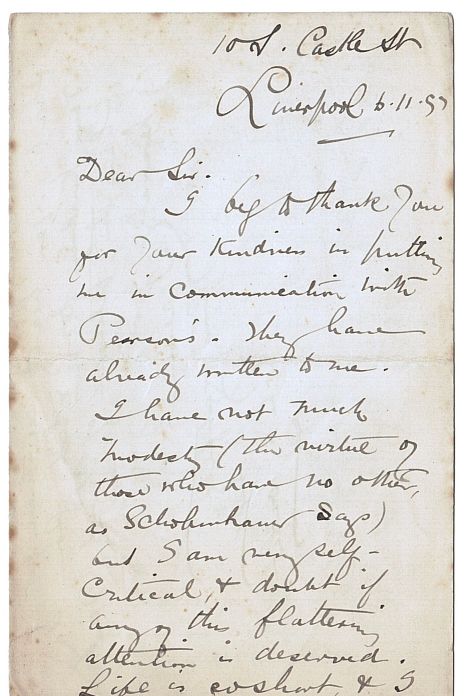 10 S. Castle St
Liverpool 6.11.97
Dear Sir.
I beg to thank you
for your kindness in putting
me in communication with
Pearson's. They have
already written to me.
I have not much
modesty (the virtue of
those who have no other,
as Schopenhauer says)
but I am very self-
critical, & doubt if
any of this flattering
attention is deserved.
Life is so short & I